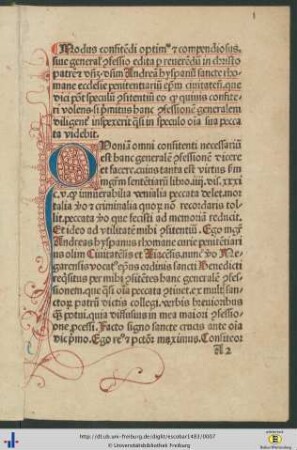 Modus confitēdi optim⁹ ⁊ compendiosus.
siue general' ꝯfessio edita p reuerēdū in christo
patrē ⁊ dn̄ꝫ. dn̄m Andreā hyspanū sancte rho-
mane ecclesie penitentiariū ep̄m ciuitateñ. que
dici pōt speculū ꝯfitentiū eo ꝙ quiuis confite-
ri volens. si pᵐitus hanc ꝯfessionē generalem
diligent' inspexerit q̄si in speculo oīa sua pecca
ta videbit.
QOniā omni confitenti necessariū
est hanc generalē ꝯfessionē dicere
et facere. cuius tanta est virtus fm̄
mgr̄m sentētiarū libro. iiij. dis. xxi.
c. v. ꝙ innuerabilia venialia peccata delet. mor
talia ꝟo ⁊ criminalia quoꝝ nō recordaris tol-
lit. peccata ꝟo que fecisti ad memoriā reducit.
Et ideo ad vtilitatē mihi ꝯfitentiū. Ego mgr̄
Andreas hyspanus rhomane curie penitētiari
us olim Ciuitatēsis et Aiacēsis. nunc ꝟo Me-
garensis vocat⁹ ep̄us ordinis sancti Benedicti
req̄situs per mihi ꝯfitētes hanc generalē ꝯfes-
sionem. que q̄si oīa peccata ꝯtinet. ex mult' san-
ctoꝝ patrū dictis collegi. verbis breuioribus
ꝗ potui. quia diffusius in mea maiori ꝯfessio-
ne ꝓcessi. Facto signo sancte crucis ante oīa
dic pᵐo. Ego re⁹ ⁊ pctōr maximus. Confiteor
A 2
http://dl.ub.uni-freiburg.de/diglit/escobar1483/0007
© Universitätsbibliothek Freiburg